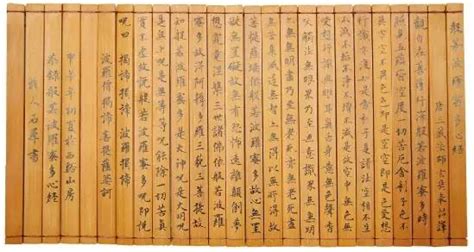 般若波羅蜜多心經
唐三藏法師玄奘奉詔譯
觀自在菩薩行深般若波羅蜜多時
照見五蘊皆空度一切苦厄舍利子色不
異空空不異色色即是空空即是色受想
行識亦復如是舍利子是諸法空相不生
不滅不垢不淨不增不減是故空中無色無
受想行識無眼耳鼻舌身意無色聲香
味觸法無眼界乃至無意識界無無明
亦無無明盡乃至無老死亦無老死盡
無苦集滅道無智亦無得以無所得故
菩提薩埵依般若波羅蜜多故心無罣
礙無罣礙故無有恐怖遠離顛倒夢
想究竟涅槃三世諸佛依般若波羅
蜜多故得阿耨多羅三藐三菩提故
知般若波羅蜜多是大神咒是大明咒
是無上咒是無等等咒能除一切苦真
實不虛故說般若波羅蜜多咒即說
咒曰 揭諦揭諦 波羅揭諦
波羅僧揭諦菩提薩婆訶
甲午年初夏於西谿山房
恭錄般若波羅蜜多心經
人石犀書